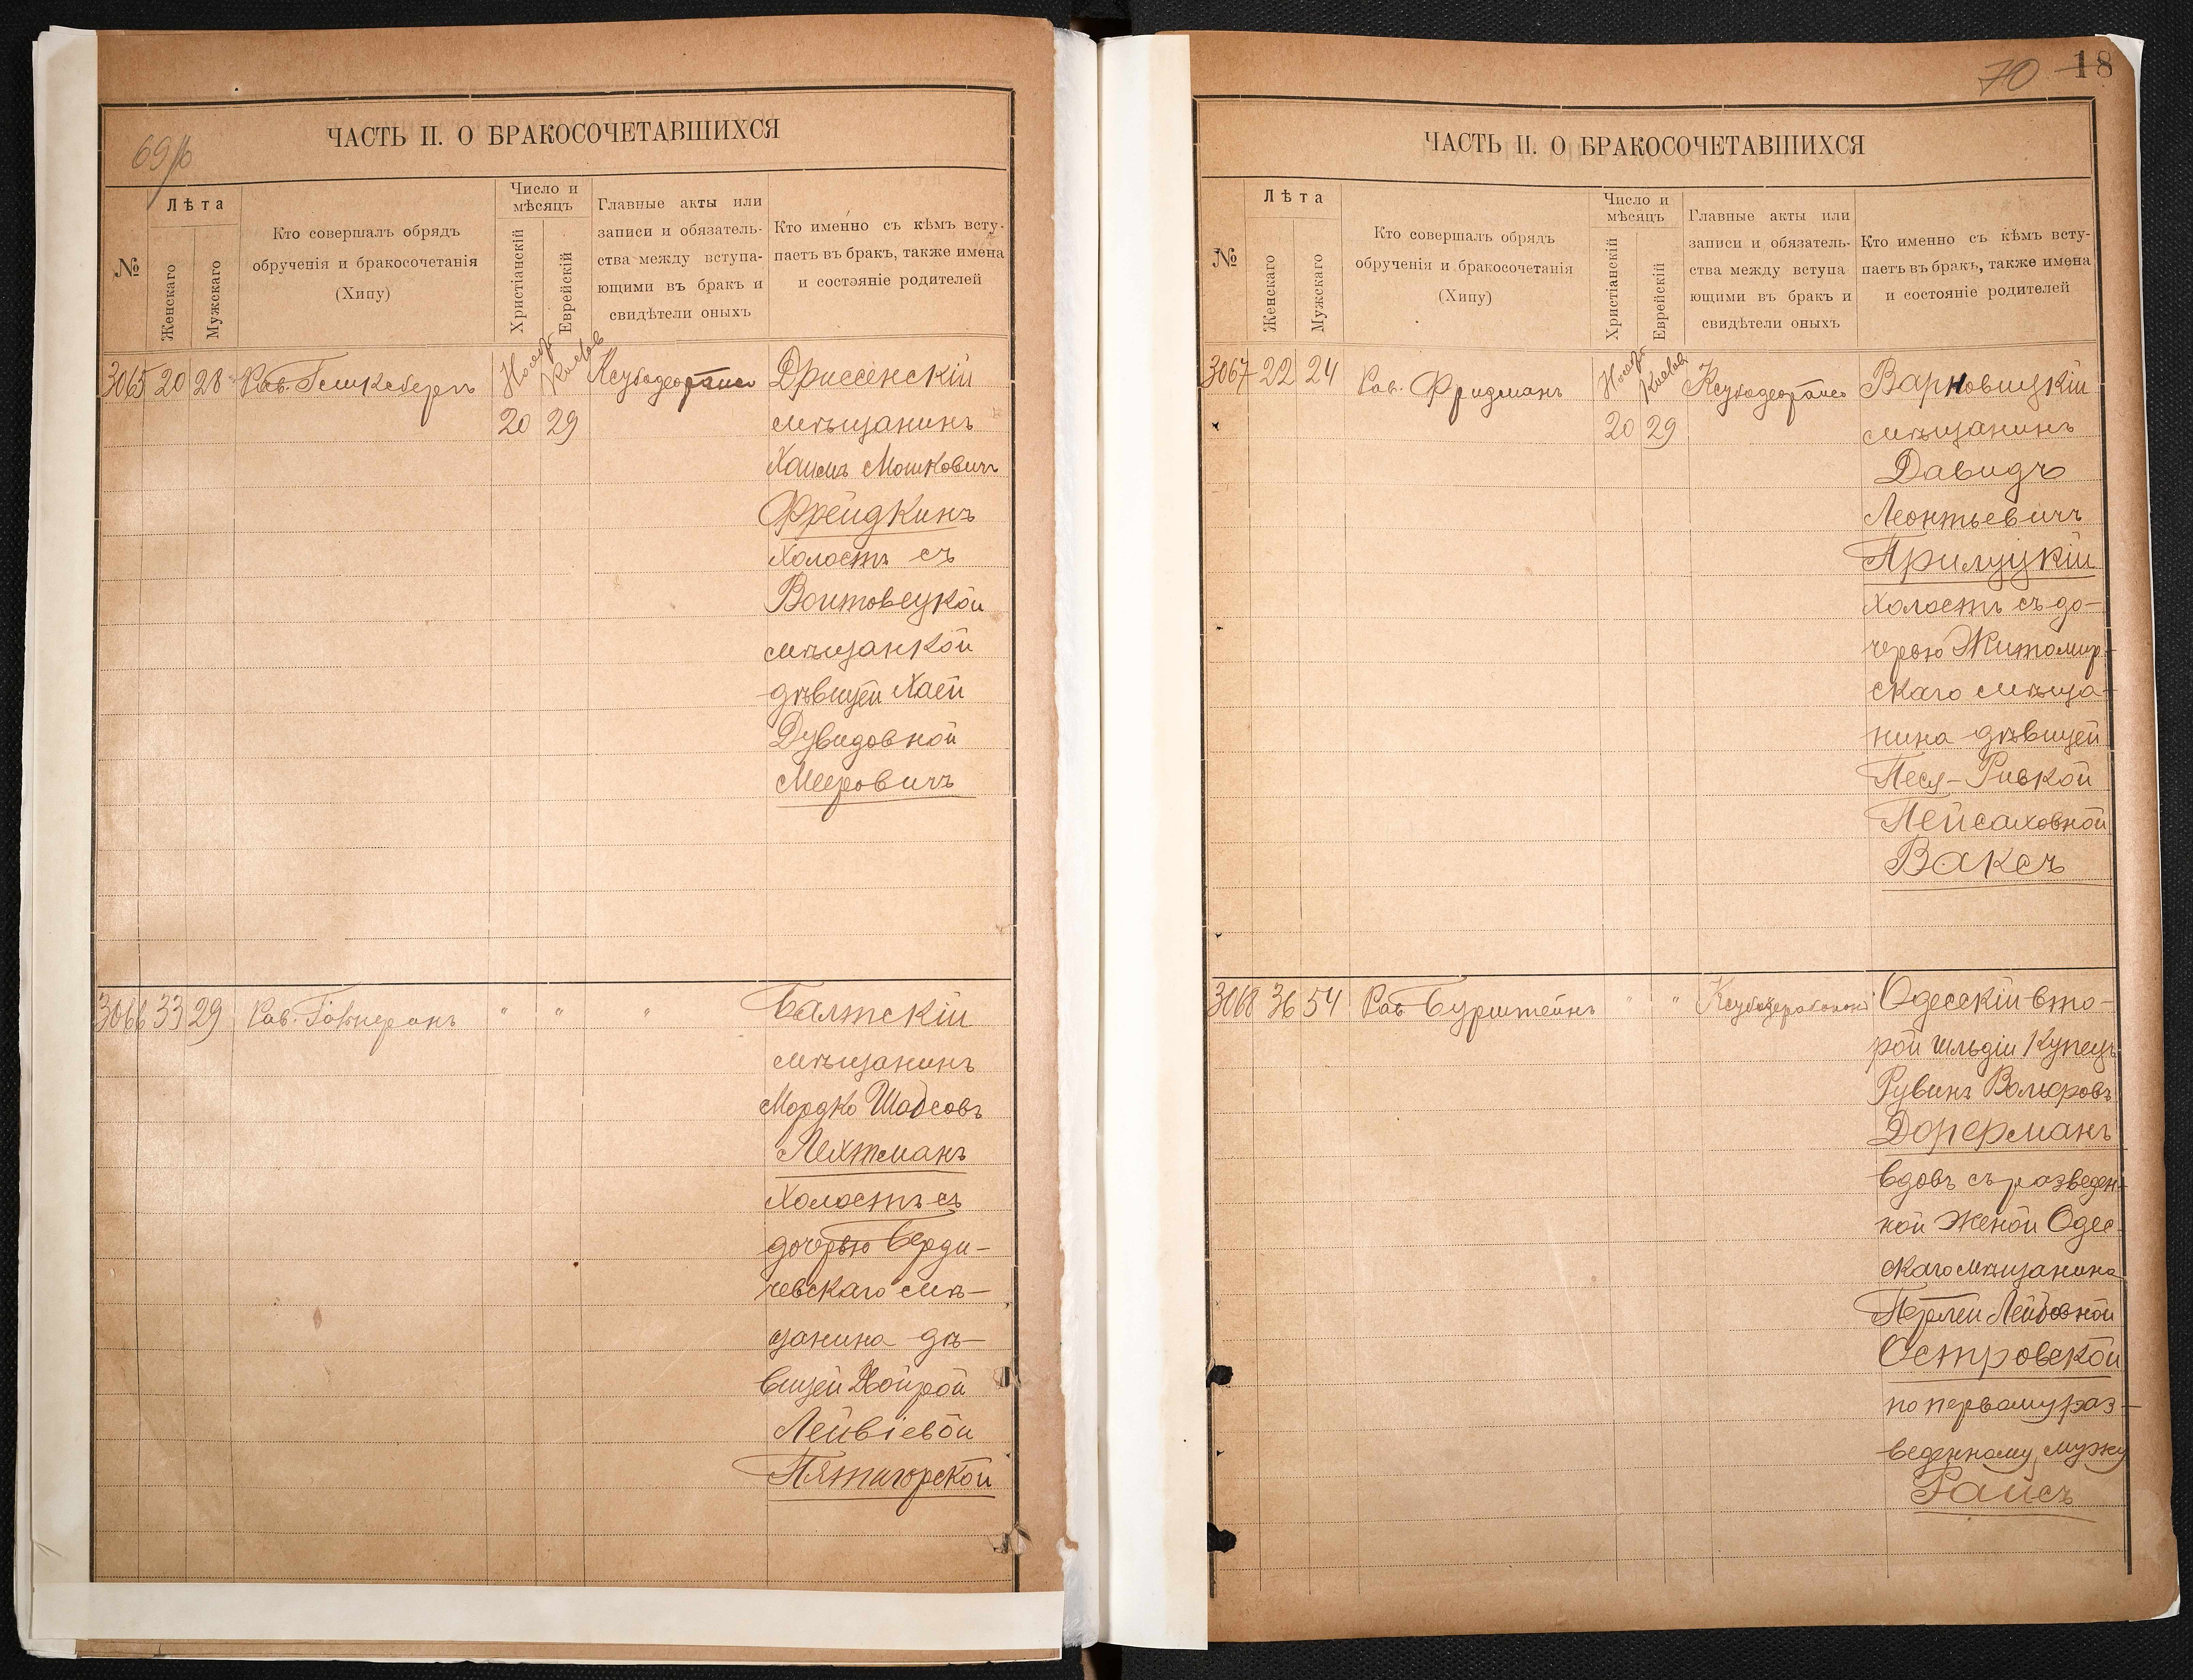 69/б
ЧАСТЬ II. О БРАКОСОЧЕТАВШИХСЯ
№
Лѣта
Женскаго
Мужскаго
Кто совершалъ обрядъ
обрученія и бракосочетанія
(Хипу)
Число и
мѣсяцъ
Христіанскій
Еврейскій
Главные акты или
записи и обязатель-
ства между вступа-
ющими въ бракъ и
свидѣтели оныхъ
Кто именно съ кѣмъ всту-
паетъ въ бракъ, также имена
и состояніе родителей
3065 20 28 Рав. Нояб Кислев Дриссенскій
20 29 мѣщанинъ
Хаимъ Мошковичъ
Фрейдкинъ
Холостъ съ
Войтовецкой
мѣщанкой
дѣвицей Хаей
Дувидовной
Мееровичъ
3066 33 29 Рав. " " " Балтскій
мѣщанинъ
Мордко Шабсовъ
Лехтманъ
Холостъ съ
дочерью Берди-
чевскаго мѣ-
щанина дѣ-
вицей
Лейвіевой
Пятигорской
70 18
ЧАСТЬ II. О БРАКОСОЧЕТАВШИХСЯ
№
Лѣта
Женскаго
Мужскаго
Кто совершалъ обрядъ
обрученія и бракосочетанія
(Хипу)
Число и
мѣсяцъ
Христіанскій
Еврейскій
Главные акты или
записи и обязатель-
ства между вступа
ющими въ бракъ и
свидѣтели оныхъ
Кто именно съ кѣмъ всту-
паетъ въ бракъ, также имена
и состояніе родителей
3067 22 24 Рав. Фридманъ Нояб Кислев Варновицкій
20 29 мѣщанинъ
Давидъ
Леонтьевичъ
Прилуцкій
Холостъ съ до-
черью Житомир-
скаго мѣща-
нина дѣвицей
Песя-Ривкой
Пейсаховной
Ваксъ
3068 36 54 Рав Бурштейнъ " " Одесскій вто-
рой гильдіи Купецъ
Рувинъ Вольфовъ
Дорфманъ
вдовъ съ разведен-
ной женой Одес-
скаго мѣщанина
Перлей Лейбовной
Островской
по первому раз-
веденному мужу
Райсъ